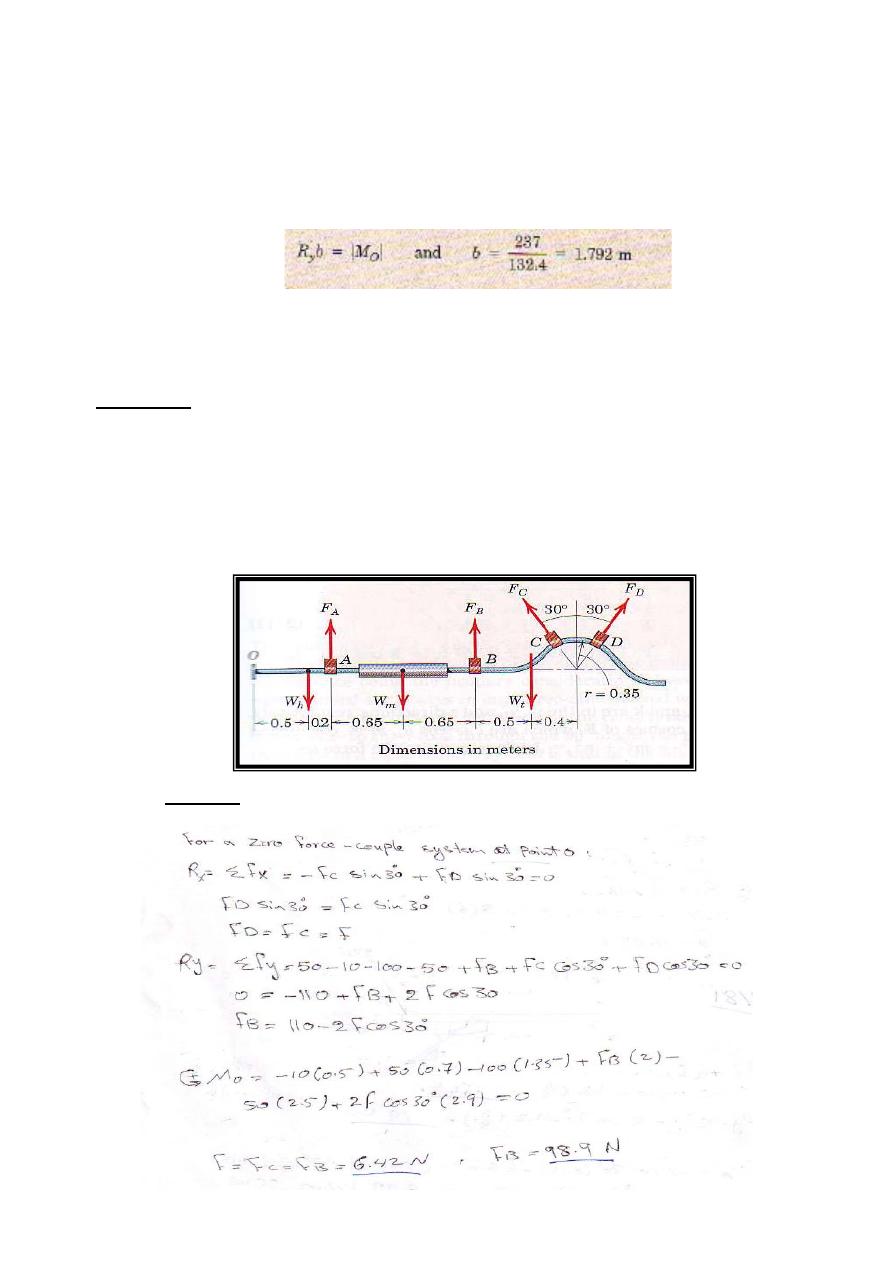 R_y b = |M_O| and b = 237/132.4 = 1.792 m
F_C F_D
F_A F_B 30° 30°
O A B C D
W_h W_m W_t r = 0.35
0.5 0.2 0.65 0.65 0.5 0.4
Dimensions in meters
For a zero force-couple system at point O:
Rx= Σfx = -Fc sin30° + FD sin 30°=0
FD sin30° = Fc sin 30°
FD= Fc = F
Ry= Σfy=50-10-100-50 +FB+Fc cos30°+ FDcos30 =0
0 = -110+FB+ 2F cos30
FB= 110-2Fcos30°
Mo = -10(0.5)+50(0.7)-100(1.35)+FB(2)-
50(2.5)+2F cos30°(2.9) =0
F=Fc=FB=6.42N , FB=98.9 N